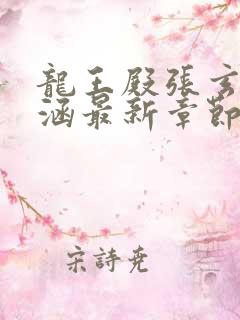 龍王殿張玄
涵最新章節
宋詩堯